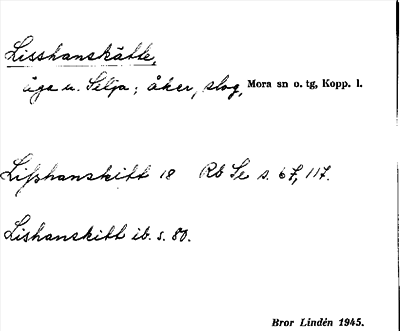 Lisshanskätte,
äga u. Selja; åker, slog, Mora sn o. tg, Kopp. l.
Lisshanskitt 18 Rb Se s. 67, 117.
Lishanskitt ib. s. 80.
Bror Lindén 1945.